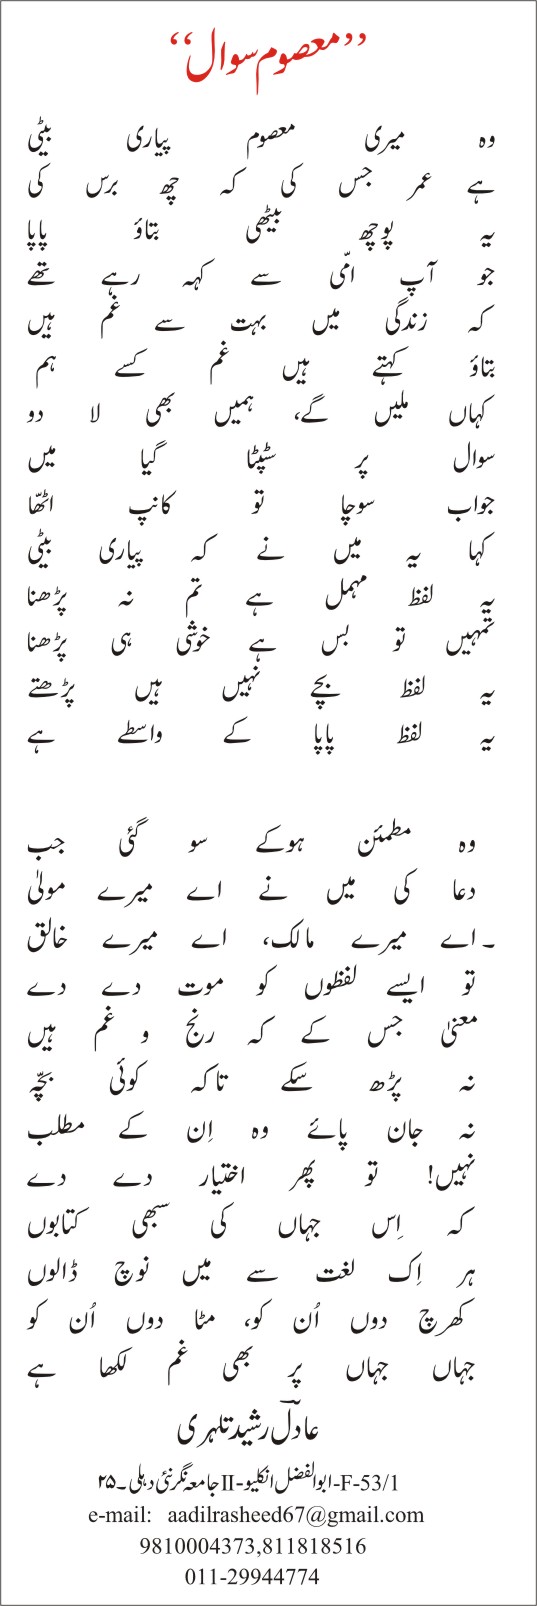 ”معصوم سوال“
وہ میری معصوم پیاری بیٹی
ہے عمر جس کی کہ چھ برس کی
یہ پوچھ بیٹھی بتاؤ پاپا
جو آپ امّی سے کہہ رہے تھے
کہ زندگی میں بہت سے غم ہیں
بتاؤ کہتے ہیں غم کسے ہم
کہاں ملیں گے، ہمیں بھی لا دو
سوال پر سٹپٹا گیا میں
جواب سوچا تو کانپ اٹھّا
کہا یہ میں نے کہ پیاری بیٹی
یہ لفظ مہمل ہے تم نہ پڑھنا
تمہیں تو بس ہے خوشی ہی پڑھنا
یہ لفظ بچے نہیں ہیں پڑھتے
یہ لفظ پاپا کے واسطے ہے
وہ مطمئن ہوکے سو گئی جب
دعا کی میں نے اے میرے مولیٰ
۔اے میرے مالک، اے میرے خالق
تو ایسے لفظوں کو موت دے دے
معنیٰ جس کے کہ رنج و غم ہیں
نہ پڑھ سکے تاکہ کوئی بچّہ
نہ جان پائے وہ اِن کے مطلب
نہیں! تو پھر اختیار دے دے
کہ اِس جہاں کی سبھی کتابوں
ہر اِک لغت سے میں نوچ ڈالوں
کھرچ دوں اُن کو، مٹا دوں اُن کو
جہاں جہاں پر بھی غم لکھا ہے
عادلؔ رشید تلہری
F-53/1-ابوالفضل انکلیو-II جامعہ نگر نئی دہلی۔۲۵
e-mail: aadilrasheed67@gmail.com
9810004373,811818516
011-29944774